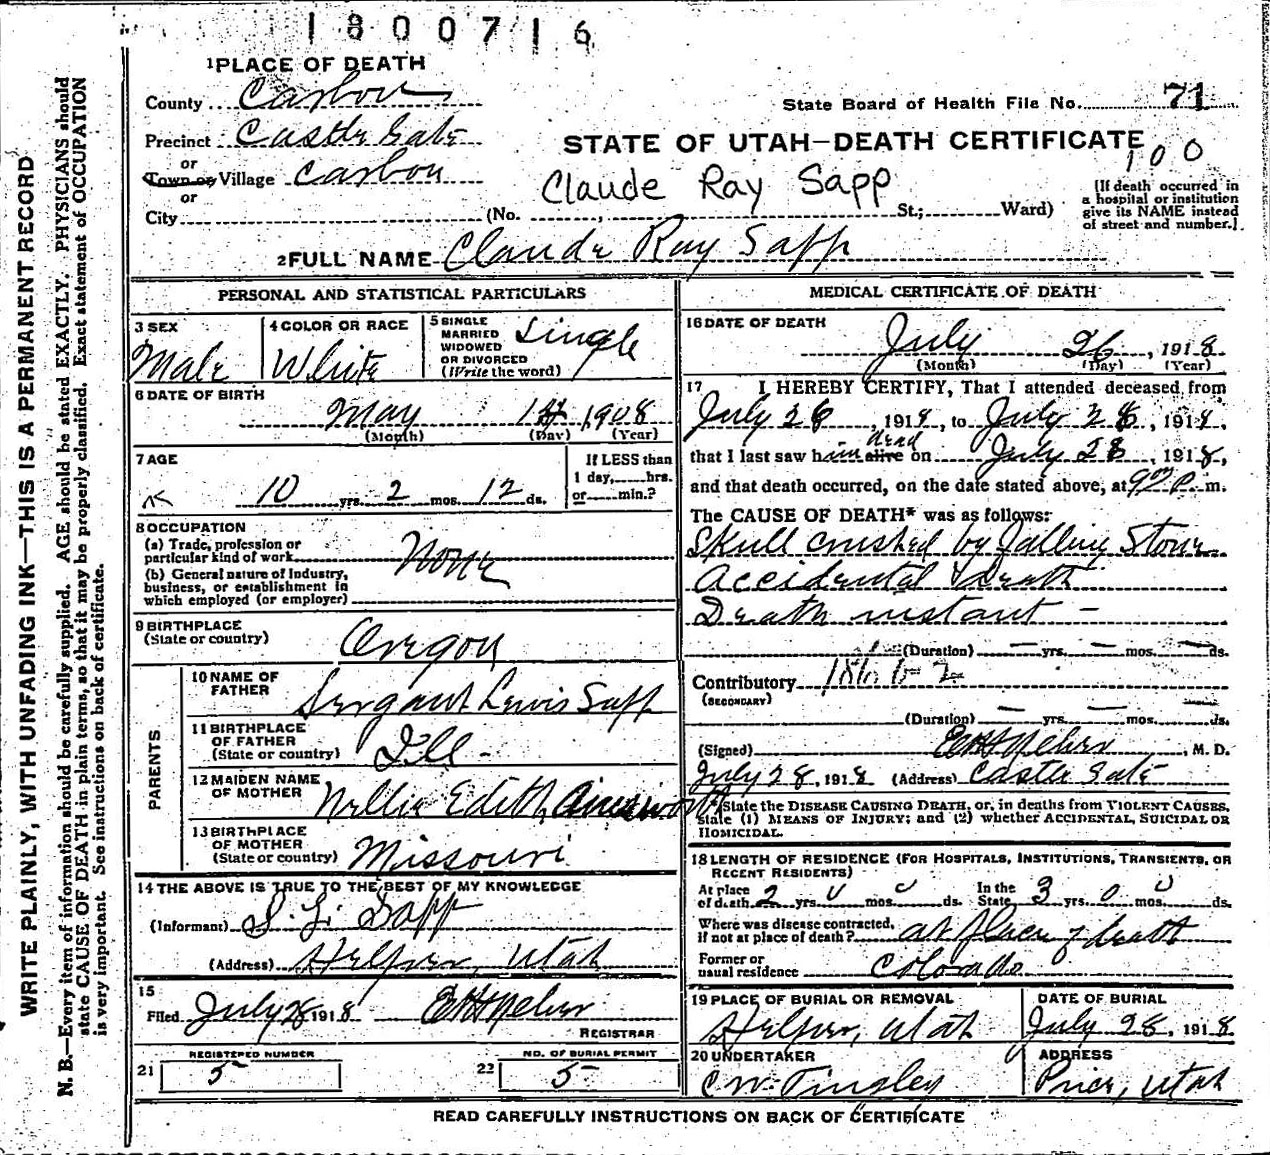 1800716
1 PLACE OF DEATH
County Carbon
State Board of Health File No. 71
Precinct Castle Gate
STATE OF UTAH—DEATH CERTIFICATE
100
or
Town or Village Carbon
Claude Ray Sapp
or
City (No. , St.; Ward)
(If death occurred in
a hospital or institution
give its NAME instead
of street and number.)
2 FULL NAME Claude Ray Sapp
PERSONAL AND STATISTICAL PARTICULARS
3 SEX Male
4 COLOR OR RACE White
5 SINGLE
MARRIED
WIDOWED
OR DIVORCED
(Write the word)
Single
6 DATE OF BIRTH
May 14, 1908
(Month) (Day) (Year)
7 AGE
10 yrs. 2 mos. 12 ds.
If LESS than
1 day, hrs.
or min.?
8 OCCUPATION
(a) Trade, profession or
particular kind of work
None
(b) General nature of Industry,
business, or establishment in
which employed (or employer)
9 BIRTHPLACE
(State or country) Oregon
PARENTS
10 NAME OF
FATHER Sergant Lewis Sapp
11 BIRTHPLACE
OF FATHER
(State or country) Ill -
12 MAIDEN NAME
OF MOTHER Nellie Edith Ainsworth
13 BIRTHPLACE
OF MOTHER
(State or country) Missouri
14 THE ABOVE IS TRUE TO THE BEST OF MY KNOWLEDGE
(Informant) S. L. Sapp
(Address) Helper, Utah
15
Filed July 28 1918
REGISTRAR
REGISTERED NUMBER
21 5
NO. OF BURIAL PERMIT
22 5
MEDICAL CERTIFICATE OF DEATH
16 DATE OF DEATH
July 26, 1918
(Month) (Day) (Year)
17 I HEREBY CERTIFY, That I attended deceased from
July 26, 1918, to July 28, 1918,
dead
that I last saw him alive on July 28, 1918,
and that death occurred, on the date stated above, at 9 P. m.
The CAUSE OF DEATH* was as follows:
Skull crushed by falling Stone
Accidental death
Death instant —
(Duration) — yrs. — mos. — ds.
Contributory
(SECONDARY)
(Duration) — yrs. — mos. — ds.
(Signed) , M. D.
July 28, 1918 (Address) Castle Gate
*State the DISEASE CAUSING DEATH, or, in deaths from VIOLENT CAUSES,
state (1) MEANS OF INJURY; and (2) whether ACCIDENTAL, SUICIDAL OR
HOMICIDAL.
18 LENGTH OF RESIDENCE (FOR HOSPITALS, INSTITUTIONS, TRANSIENTS, OR
RECENT RESIDENTS)
At place
of death 2 yrs. 0 mos. 0 ds.
In the
State 3 yrs. 0 mos. 0 ds.
Where was disease contracted,
if not at place of death? at place of death
Former or
usual residence Colorado
19 PLACE OF BURIAL OR REMOVAL
Helper, Utah
DATE OF BURIAL
July 28, 1918
20 UNDERTAKER
C W Tingley
ADDRESS
Price, Utah
READ CAREFULLY INSTRUCTIONS ON BACK OF CERTIFICATE
WRITE PLAINLY, WITH UNFADING INK—THIS IS A PERMANENT RECORD
N. B.—Every item of information should be carefully supplied. AGE should be stated EXACTLY. PHYSICIANS should
state CAUSE OF DEATH in plain terms, so that it may be properly classified. Exact statement of OCCUPATION
is very important. See instructions on back of certificate.